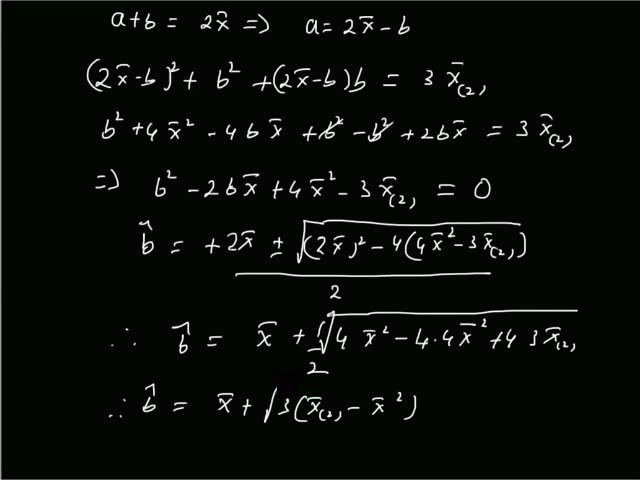 a+b = 2x̄ => a = 2x̄-b
(2x̄-b)² + b² + (2x̄-b)b = 3 x̄₍₂₎
b² + 4x̄² - 4bx̄ + b² - b² + 2bx̄ = 3 x̄₍₂₎
=> b² - 2bx̄ + 4x̄² - 3x̄₍₂₎ = 0
b̂ = +2x̄ ± √((2x̄)² - 4(4x̄² - 3x̄₍₂₎))
2
∴ b̂ = x̄ + 1/2 √(4 x̄² - 4·4x̄² + 4 3x̄₍₂₎)
∴ b̂ = x̄ + √3(x̄₍₂₎ - x̄²)